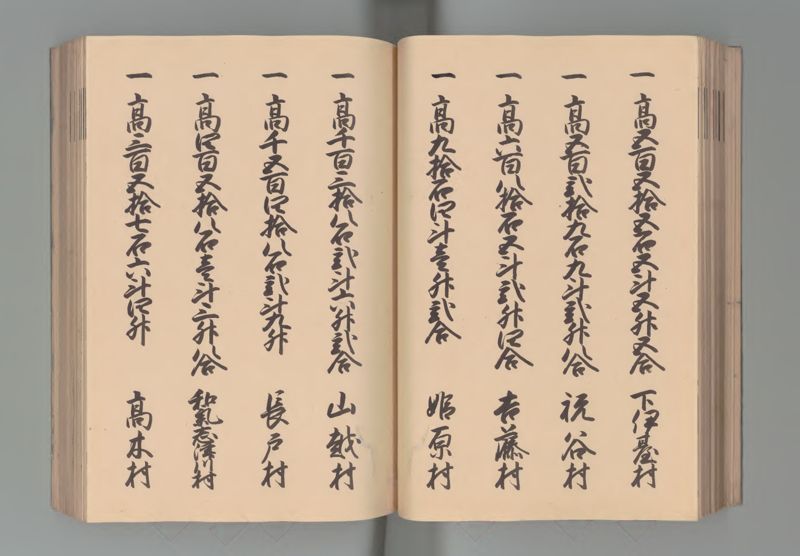 一 高五百五拾五石五斗五升五合 下伊臺村
一 高五百弐拾九石九斗弐升八合 祝谷村
一 高六百八拾石五斗弐升四合 吉藤村
一 高九拾石四斗壱升弐合 姫原村
一 高千百三拾八石弐斗六升弐合 山越村
一 高千五百四拾八石弐斗九升 長戸村
一 高四百五拾八石壱斗三升八合 和氣志津川村
一 高三百五拾七石六斗四升 高木村